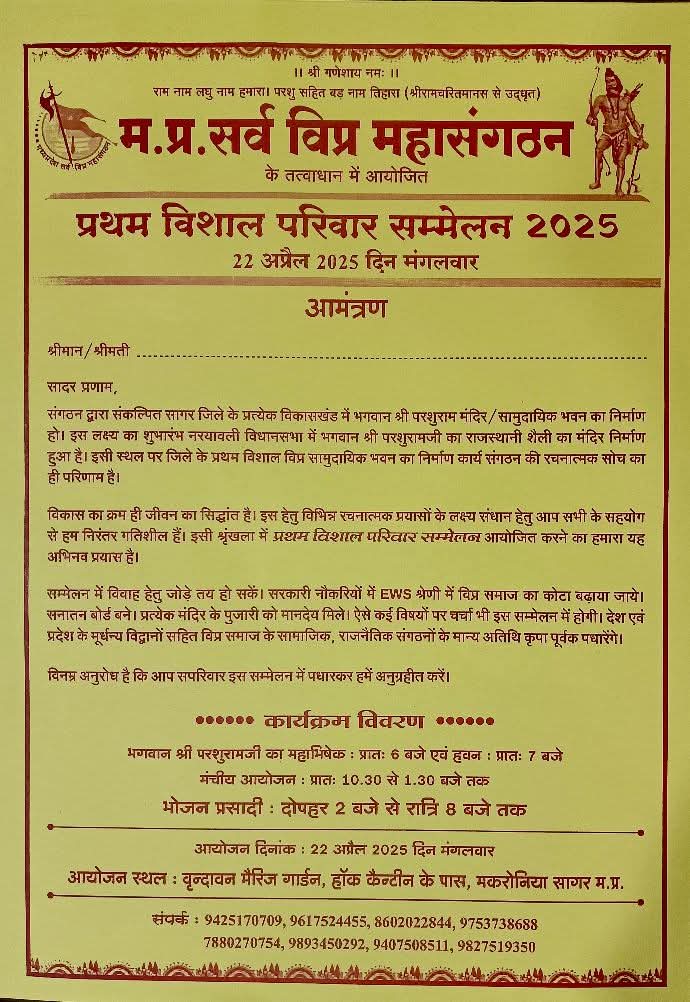 ।। श्री गणेशाय नमः ।।
राम नाम लघु नाम हमारा। परशु सहित बड़ नाम तिहारा (श्रीरामचरितमानस से उद्धृत)
म.प्र.सर्व विप्र महासंगठन
के तत्वाधान में आयोजित
मध्यप्रदेश सर्व विप्र महासंगठन
प्रथम विशाल परिवार सम्मेलन 2025
22 अप्रैल 2025 दिन मंगलवार
आमंत्रण
श्रीमान/श्रीमती
सादर प्रणाम,
संगठन द्वारा संकल्पित सागर जिले के प्रत्येक विकासखंड में भगवान श्री परशुराम मंदिर/सामुदायिक भवन का निर्माण
हो। इस लक्ष्य का शुभारंभ नरयावली विधानसभा में भगवान श्री परशुरामजी का राजस्थानी शैली का मंदिर निर्माण
हुआ है। इसी स्थल पर जिले के प्रथम विशाल विप्र सामुदायिक भवन का निर्माण कार्य संगठन की रचनात्मक सोच का
ही परिणाम है।
विकास का क्रम ही जीवन का सिद्धांत है। इस हेतु विभिन्न रचनात्मक प्रयासों के लक्ष्य संधान हेतु आप सभी के सहयोग
से हम निरंतर गतिशील हैं। इसी श्रृंखला में प्रथम विशाल परिवार सम्मेलन आयोजित करने का हमारा यह
अभिनव प्रयास है।
सम्मेलन में विवाह हेतु जोड़े तय हो सकें। सरकारी नौकरियों में EWS श्रेणी में विप्र समाज का कोटा बढ़ाया जाये।
सनातन बोर्ड बने। प्रत्येक मंदिर के पुजारी को मानदेय मिले। ऐसे कई विषयों पर चर्चा भी इस सम्मेलन में होगी। देश एवं
प्रदेश के मूर्धन्य विद्वानों सहित विप्र समाज के सामाजिक, राजनैतिक संगठनों के मान्य अतिथि कृपा पूर्वक पधारेंगे।
विनम्र अनुरोध है कि आप सपरिवार इस सम्मेलन में पधारकर हमें अनुग्रहीत करें।
कार्यक्रम विवरण
भगवान श्री परशुरामजी का महाभिषेक : प्रातः 6 बजे एवं हवन : प्रातः 7 बजे
मंचीय आयोजन : प्रातः 10.30 से 1.30 बजे तक
भोजन प्रसादी : दोपहर 2 बजे से रात्रि 8 बजे तक
आयोजन दिनांक : 22 अप्रैल 2025 दिन मंगलवार
आयोजन स्थल : वृन्दावन मैरिज गार्डन, हॉक कैन्टीन के पास, मकरोनिया सागर म.प्र.
संपर्क : 9425170709, 9617524455, 8602022844, 9753738688
7880270754, 9893450292, 9407508511, 9827519350